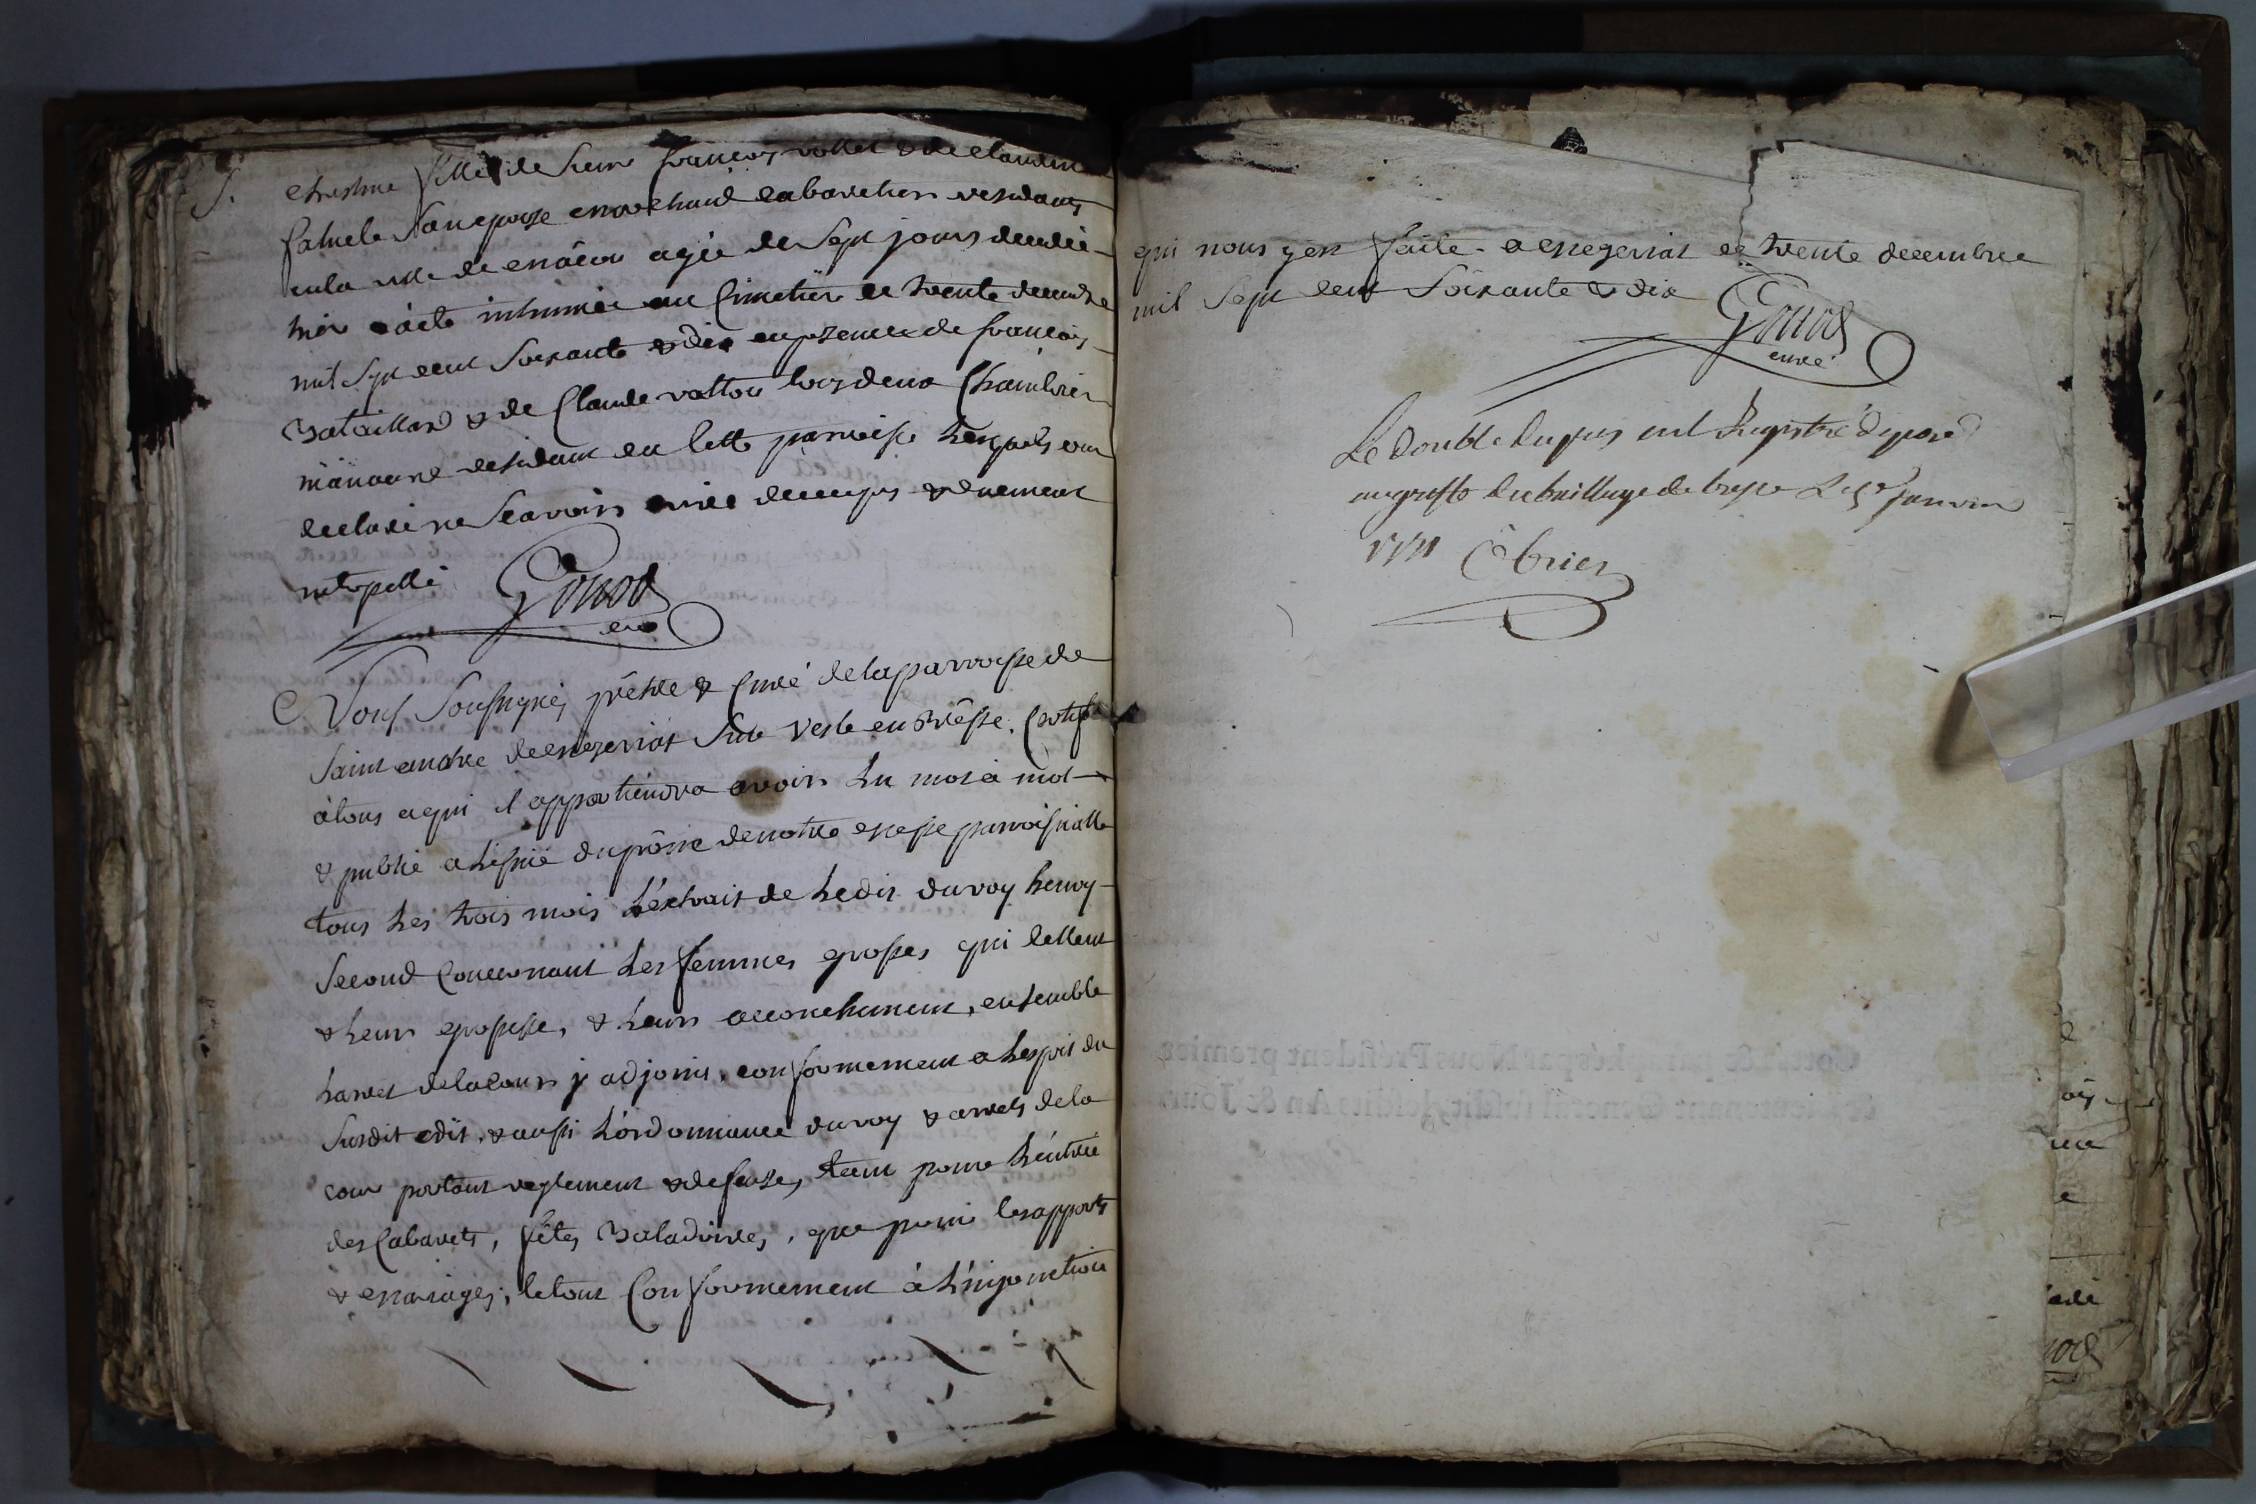 S.
christine fille de sieur francois vollet & de claudine
sa epouse marchand cabaretier residants
en la ville de mâcon agée de sept jours decedée
hier a été inhumée au Cimetiere le trente decembre
mil sept cent soixante & dix en presence de francois
Bataillard & de Claude vatton tous deux
manoeuvre residant en cette paroisse lesquels ont
declaré ne scavoir ecrire de ce enquis & duement
interpellé. Gonod
curé
Nous soussigné, prêtre & Curé de la parroisse de
saint andré de mezeriat sur vesle en Brêsse. Certifie
à tous a qui il appartiendra avoir lu mot à mot
& publié a l'issüe du prône de notre messe paroissialle
tous les trois mois l'éxtrait de l'edit du roy henry
second Concernant les femmes grosses qui cellent
& leur grossesse, & leur accouchement, ensemble
l'arret de la cour y adjoint, conformement a l'esprit du
susdit edit, & aussi l'ordonnance du roy & arrets de la
cour portant reglement & defense, tant pour l'entrée
des Cabarets, fêtes Baladoires, que pour les apports
& mariages, le tout Conformement à l'injonction
qui nous y en faite. a mezeriat ce trente decembre
mil sept cent soixante & dix Gonod
curé
Le double du present Registre déposé
au greffe du bailliage de bresse Le janvier
1771 Cebrier
Cotté & paraphé par Nous Président premier
& Lieutenant General susdit, lesdits An & Jour